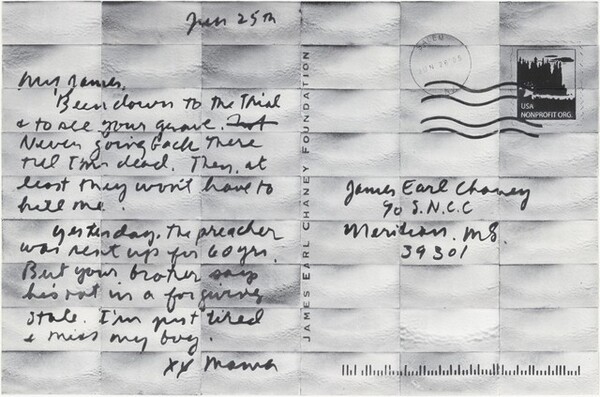 Jun 25th
My James,
Been down to the Trial
& to see your grave.
Never going back there
till I'm dead. Then, at
least they won't have to
kill me.
Yesterday, the preacher
was sent up for 60 yrs.
But your brother says
he's not in a forgiving
state. I'm just tired
& miss my boy.
XX Mama
JAMES EARL CHANEY FOUNDATION
USA
NONPROFIT ORG.
James Earl Chaney
℅ S.N.C.C
Meridian, MS.
39301